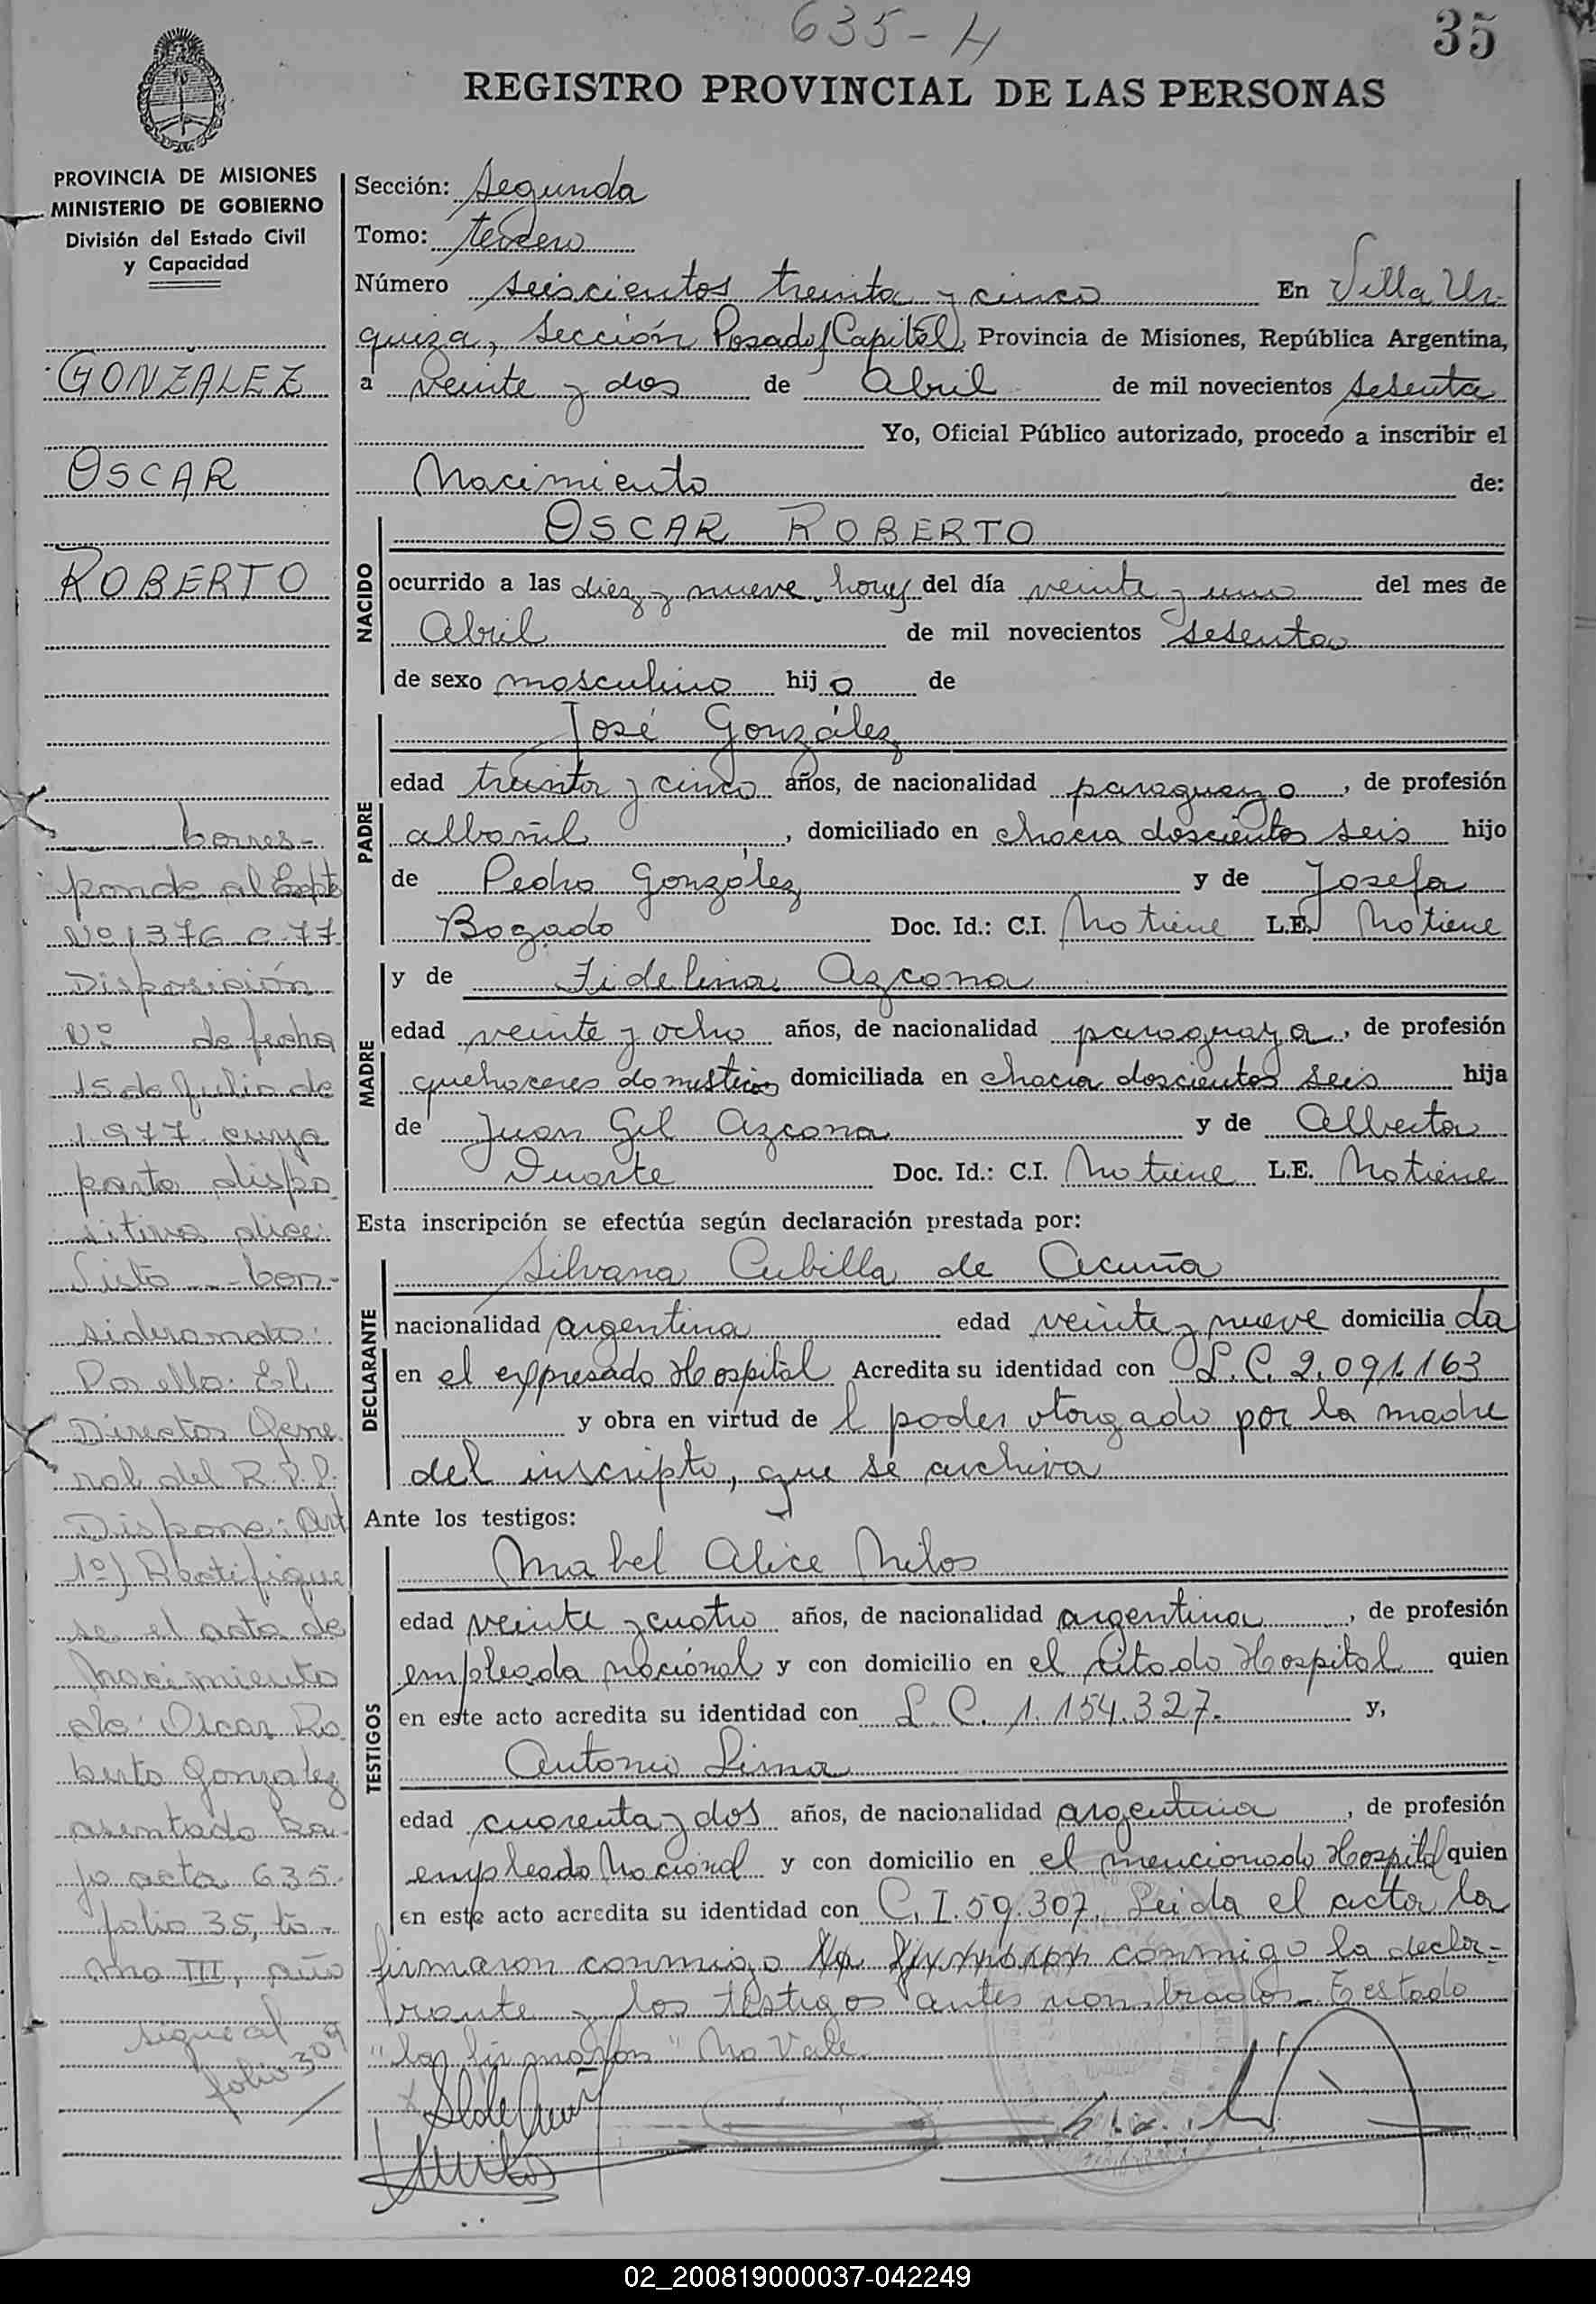 635-H
35
REGISTRO PROVINCIAL DE LAS PERSONAS
PROVINCIA DE MISIONES
MINISTERIO DE GOBIERNO
División del Estado Civil
y Capacidad
GONZÁLEZ
OSCAR
ROBERTO
Corres-
ponde al Expte
Nº 1376-C-77
Disposición
Nº de fecha
15 de Julio de
1977 cuya
parte dispo
sitiva dice:
Visto -- Con-
siderando:
Por ello: El
Director Gene
ral del R.P.P.
Dispone: Art
1º) Rectifique
se el acta de
Nacimiento
de: Oscar Ro
berto Gonzalez
asentado ba-
jo acta 635
folio 35, to-
mo III, año
sigue al
folio 309
Sección: Segunda
Tomo: tercero
Número seiscientos treinta y cinco En Villa Ur-
quiza, Sección Posadas (Capital) Provincia de Misiones, República Argentina,
a veinte y dos de Abril de mil novecientos sesenta
Yo, Oficial Público autorizado, procedo a inscribir el
Nacimiento de:
OSCAR ROBERTO
NACIDO
ocurrido a las diez y nueve horas del día veinte y uno del mes de
Abril de mil novecientos sesenta
de sexo masculino hijo de
José González
PADRE
edad treinta y cinco años, de nacionalidad paraguayo, de profesión
albañil, domiciliado en chacra doscientos seis hijo
de Pedro González y de Josefa
Bogado Doc. Id.: C.I. No tiene L.E. No tiene
y de Fidelina Azcona
MADRE
edad veinte y ocho años, de nacionalidad paraguaya, de profesión
quehaceres domesticos domiciliada en chacra doscientos seis hija
de Juan Gil Azcona y de Alberta
Duarte Doc. Id.: C.I. No tiene L.E. No tiene
Esta inscripción se efectúa según declaración prestada por:
Silvana Cubilla de Acuña
DECLARANTE
nacionalidad argentina edad veinte y nueve domiciliada
en el expresado Hospital Acredita su identidad con L.C. 2.091.163
y obra en virtud del poder otorgado por la madre
del inscripto, que se archiva
Ante los testigos:
Mabel Alice Milos
TESTIGOS
edad veinte y cuatro años, de nacionalidad argentina, de profesión
empleada nacional y con domicilio en el citado Hospital quien
en este acto acredita su identidad con L.C. 1.154.327.- y,
Antonio Lima
edad cuarenta y dos años, de nacionalidad argentina, de profesión
empleado Nacional y con domicilio en el mencionado Hospital quien
en este acto acredita su identidad con C.I. 59.307. Leida el acta la
firmaron conmigo la firmaron conmigo la decla-
rante y los testigos antes nombrados.- Testado
"la firmaron" No Vale
02_200819000037-042249